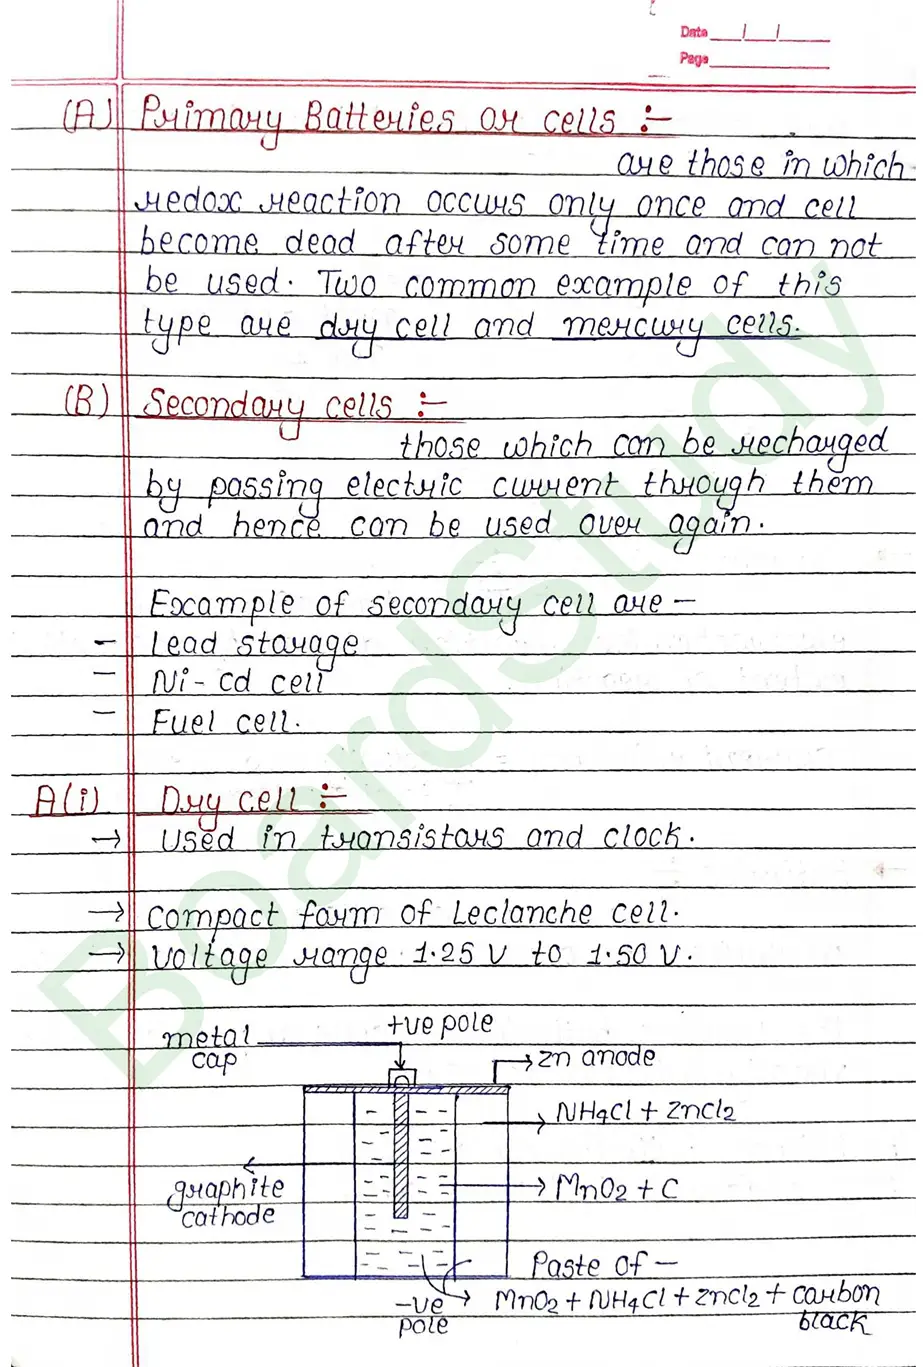 Date / /
Page
(A) Primary Batteries or cells :-
are those in which
redox reaction occurs only once and cell
become dead after some time and can not
be used. Two common example of this
type are dry cell and mercury cells.
(B) Secondary cells :-
those which can be recharged
by passing electric current through them
and hence can be used over again.
Example of secondary cell are -
- Lead storage
- Ni-cd cell
- Fuel cell.
A(i) Dry cell :-
→ Used in transistars and clock.
→ compact form of Leclanche cell.
→ Voltage range 1.25 V to 1.50 V.
+ve pole
metal
cap
→ Zn anode
→ NH4Cl + ZnCl2
graphite
cathode
→ MnO2 + C
Paste of -
MnO2 + NH4Cl + ZnCl2 + carbon
black
-ve
pole
BoardStudy